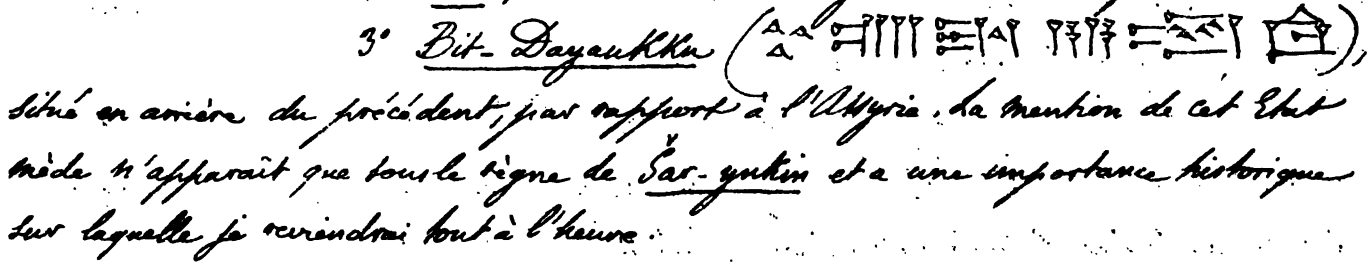 3° Bit-Dayaukku (
situé en arrière du précédent, par rapport à l'Assyrie. La mention de cet Etat
mède n'apparaît que sous le règne de Šar-yukin et a une importance historique
sur laquelle je reviendrai tout à l'heure.